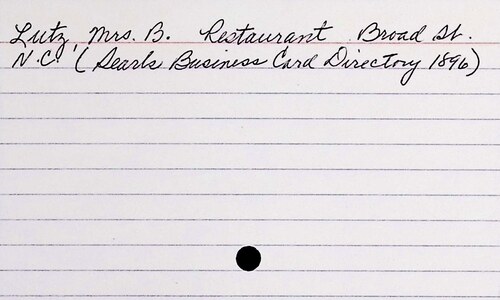 Lutz, Mrs. B. Restaurant Broad St.
N.C. (Searls Business Card Directory 1896)